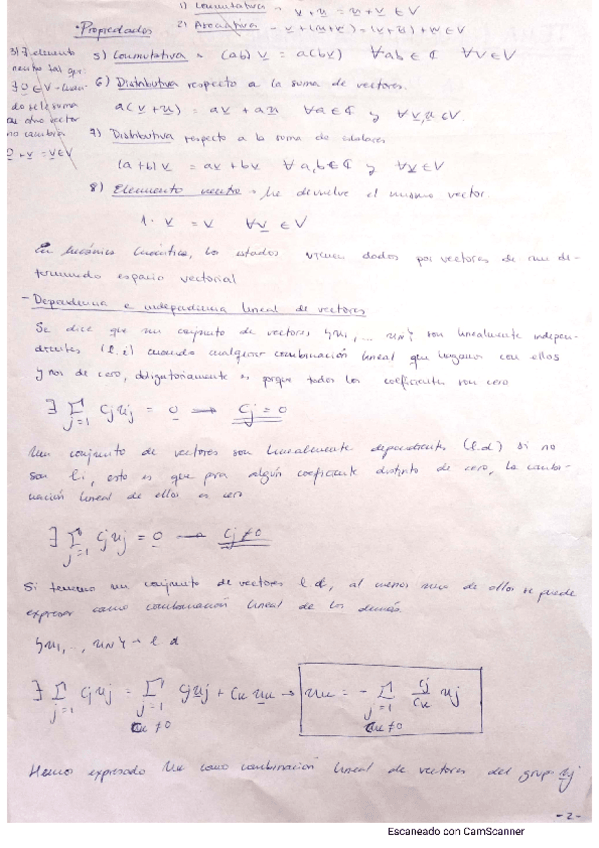 1) Conmutativa → v + u = u + v ∈ V
• Propiedades 2) Asociativa → v + (u + w) = (v + u) + w ∈ V
3) ∃ elemento
neutro tal que
∃ 0 ∈ V
do se le suma
a otro vector
no cambia
0 + v = v ∈ V
5) Conmutativa → (ab) v = a(bv) ∀ab ∈ ℂ ∀v ∈ V
6) Distributiva respecto a la suma de vectores.
a(v + u) = av + au ∀a ∈ ℂ y ∀v, u ∈ V.
7) Distributiva respecto a la suma de escalares
(a + b) v = av + bv ∀a, b ∈ ℂ y ∀v ∈ V
8) Elemento neutro → Me devuelve el mismo vector.
1 · v = v ∀v ∈ V
En Mecánica Cuántica, los estados vienen dados por vectores de un de-
terminado espacio vectorial
- Dependencia e independencia lineal de vectores
Se dice que un conjunto de vectores {u1, ... uN} son linealmente indepen-
dientes (l.i) cuando cualquier combinación lineal que hagamos con ellos
y nos de cero, obligatoriamente es porque todos los coeficientes son cero
∃ Σ j=1 cj uj = 0 → cj = 0
Un conjunto de vectores son linealmente dependientes (l.d) si no
son l.i, esto es que para algún coeficiente distinto de cero, la combi-
nación lineal de ellos es cero
∃ Σ j=1 cj uj = 0 → cj ≠ 0
Si tenemos un conjunto de vectores l.d, al menos uno de ellos se puede
expresar como combinación lineal de los demás.
{u1, .., uN} → l.d
∃ Σ j=1 cj uj = Σ j=1 cj uj + ck uk → uk = - Σ j=1 cj/ck uj
ck ≠ 0 ck ≠ 0
Hemos expresado uk como combinación lineal de vectores del grupo uj
- 2 -
Escaneado con CamScanner